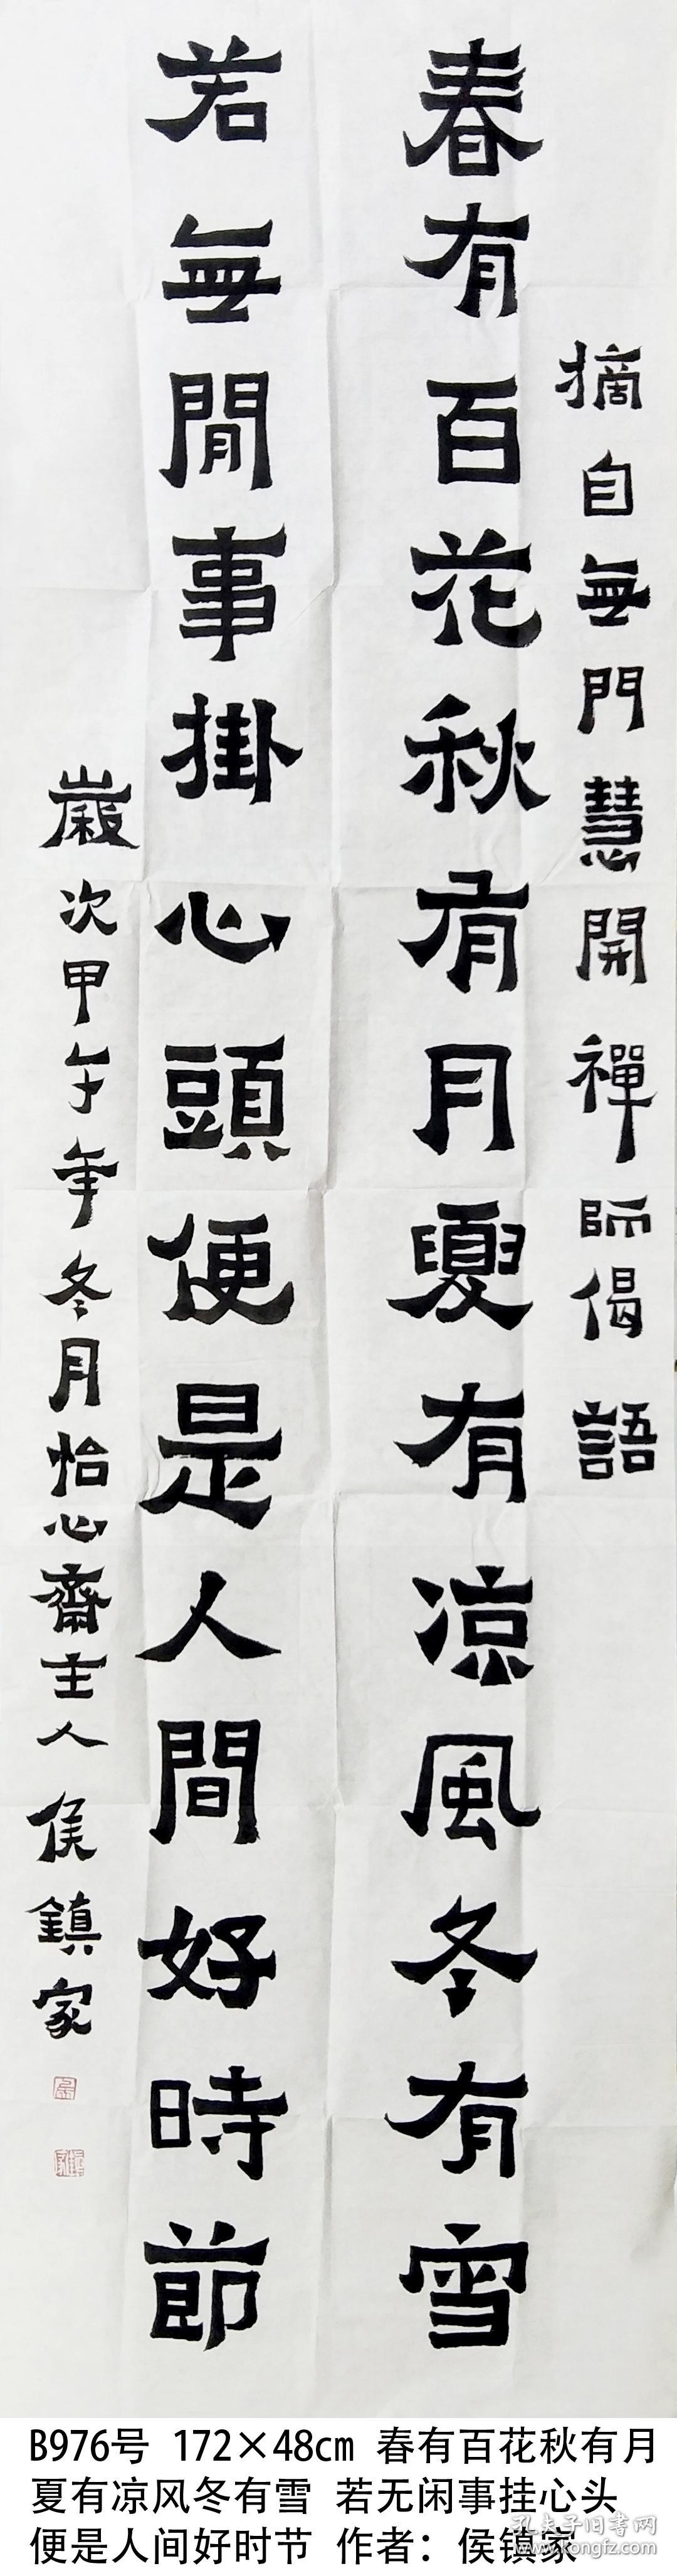 摘自無門慧開禪師偈語
春有百花秋有月夏有涼風冬有雪
若無閒事掛心頭便是人間好時節
歲次甲午年冬月怡心齋主人侯鎮家
B976号 172×48cm 春有百花秋有月
夏有凉风冬有雪 若无闲事挂心头
便是人间好时节 作者：侯镇家
孔夫子旧书网
www.kongfz.com